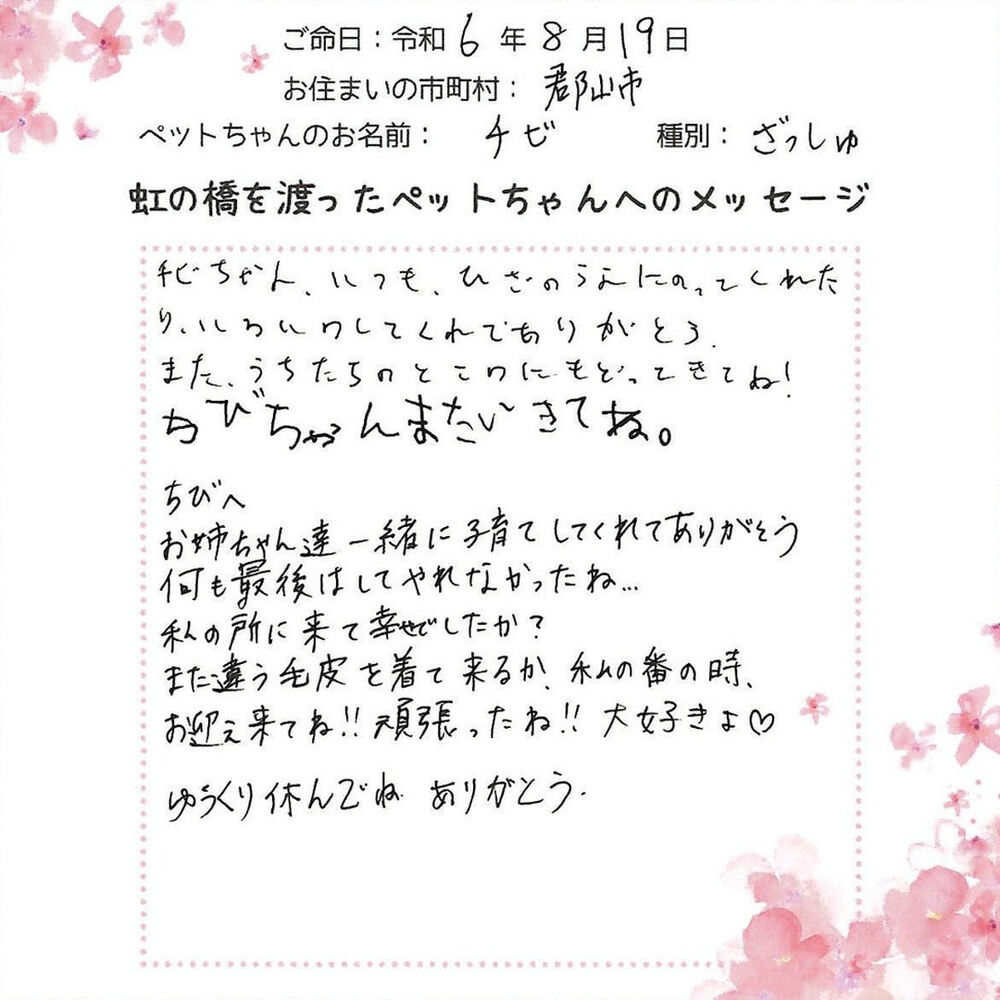 ご命日：令和6年8月19日
お住まいの市町村： 郡山市
ペットちゃんのお名前： チビ 種別： ざっしゅ
虹の橋を渡ったペットちゃんへのメッセージ
チビちゃん、いつも、ひざのうえにのってくれた
り、いろいろしてくれてありがとう.
また、うちたちのところにもどってきてね!
ちびちゃんまたいきてね。
ちびへ
お姉ちゃん達一緒に子育てしてくれてありがとう
何も最後はしてやれなかったね...
私の所に来て幸せでしたか?
また違う毛皮を着て来るか、私の番の時、
お迎え来てね!! 頑張ったね!! 大好きよ♡
ゆっくり休んでね ありがとう.